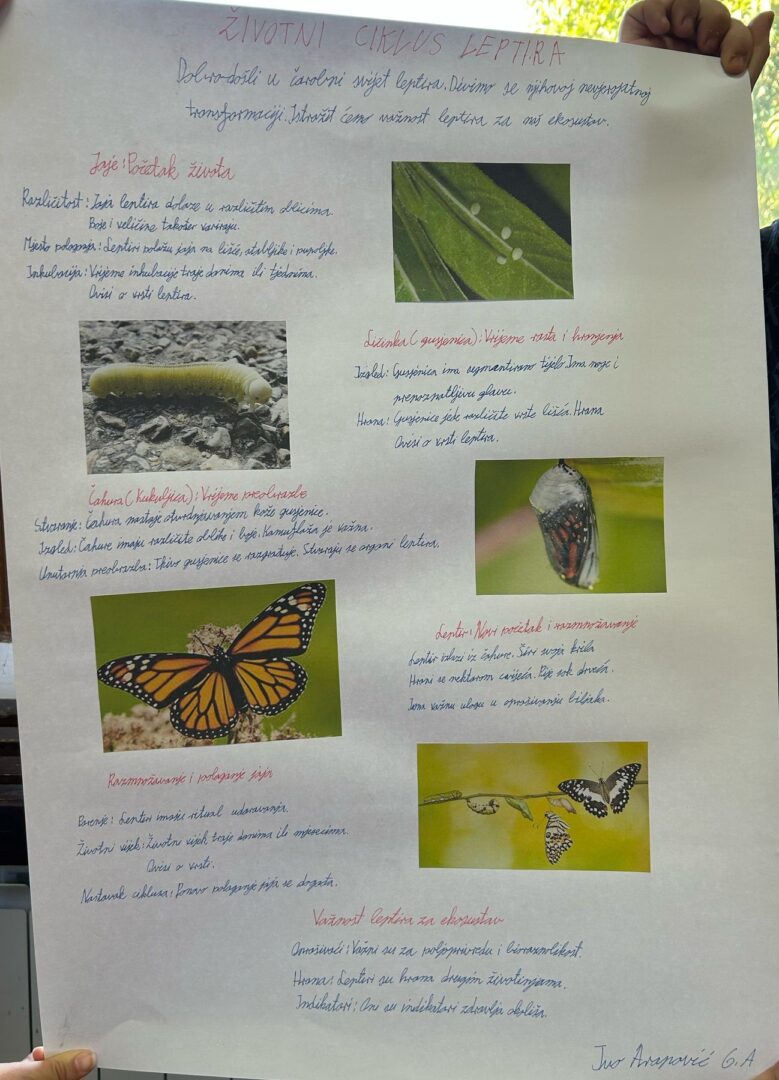 ŽIVOTNI CIKLUS LEPTIRA
Dobrodošli u čarobni svijet leptira. Divimo se njihovoj nevjerojatnoj
transformaciji. Istražit ćemo važnost leptira za naš ekosustav.
Jaje: Početak života
Različitost: Jaja leptira dolaze u različitim oblicima.
Boje i veličine također variraju.
Mjesto polaganja: Leptiri polažu jaja na lišće, stabljike i pupoljke.
Inkubacija: Vrijeme inkubacije traje danima ili tjednima.
Ovisi o vrsti leptira.
Ličinka (gusjenica): Vrijeme rasta i hranjenja
Izgled: Gusjenica ima segmentirano tijelo. Ima noge i
prepoznatljivu glavu.
Hrana: Gusjenice jede različite vrste lišća. Hrana
Ovisi o vrsti leptira.
Čahura (Kukuljica): Vrijeme preobrazbe
Stvaranje: Čahura nastaje otvrdnjavanjem kože gusjenice.
Izgled: Čahure imaju različite oblike i boje. Kamuflaža je važna.
Unutarnja preobrazba: Tkivo gusjenice se razgrađuje. Stvaraju se organi leptira.
Leptir: Novi početak i razmnožavanje
Leptir izlazi iz čahure. Širi svoja krila
Hrani se nektarom cvijeća. Pije sok drveća.
Ima važnu ulogu u oprašivanju biljaka.
Razmnožavanje i polaganje jaja
Parenje: Leptiri imaju ritual udvaranja.
Životni vijek: Životni vijek traje danima ili mjesecima.
Ovisi o vrsti.
Nastavak ciklusa: Ponovo polaganje jaja se događa.
Važnost leptira za ekosustav
Oprašivači: Važni su za poljoprivredu i bioraznolikost.
Hrana: Leptiri su hrana drugim životinjama.
Indikatori: Oni su indikatori zdravlja okoliša.
Ivo Arapović 6.A